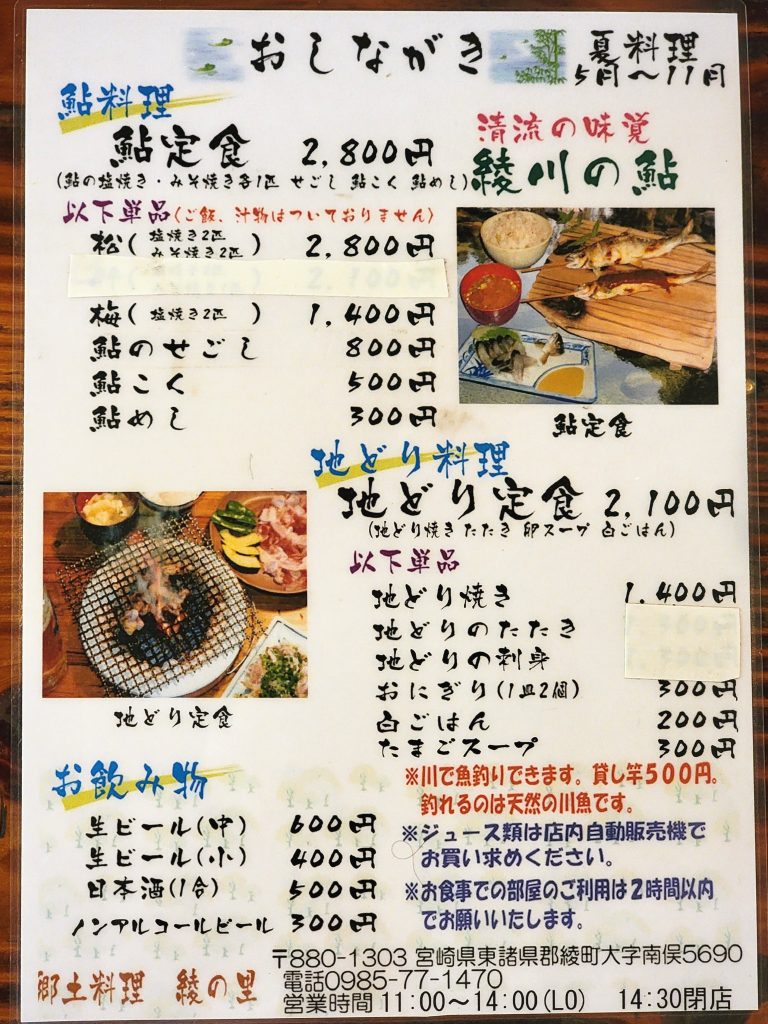 おしながき
夏料理
5月～11月
鮎料理
鮎定食 2,800円
(鮎の塩焼き・みそ焼き各1匹 せごし 鮎こく 鮎めし)
清流の味覚
綾川の鮎
以下単品(ご飯、汁物はついておりません)
松(塩焼き2匹 みそ焼き2匹) 2,800円
梅(塩焼き2匹) 1,400円
鮎のせごし 800円
鮎こく 500円
鮎めし 300円
鮎定食
地どり料理
地どり定食 2,100円
(地どり焼き たたき 卵スープ 白ごはん)
以下単品
地どり焼き 1,400円
地どりのたたき
地どりの刺身
おにぎり(1皿2個) 300円
白ごはん 200円
たまごスープ 300円
地どり定食
お飲み物
生ビール(中) 600円
生ビール(小) 400円
日本酒(1合) 500円
ノンアルコールビール 300円
※川で魚釣りできます。貸し竿500円。
釣れるのは天然の川魚です。
※ジュース類は店内自動販売機で
お買い求めください。
※お食事での部屋のご利用は2時間以内
でお願いいたします。
郷土料理 綾の里
〒880-1303 宮崎県東諸県郡綾町大字南俣5690
電話0985-77-1470
営業時間 11:00～14:00(LO) 14:30閉店